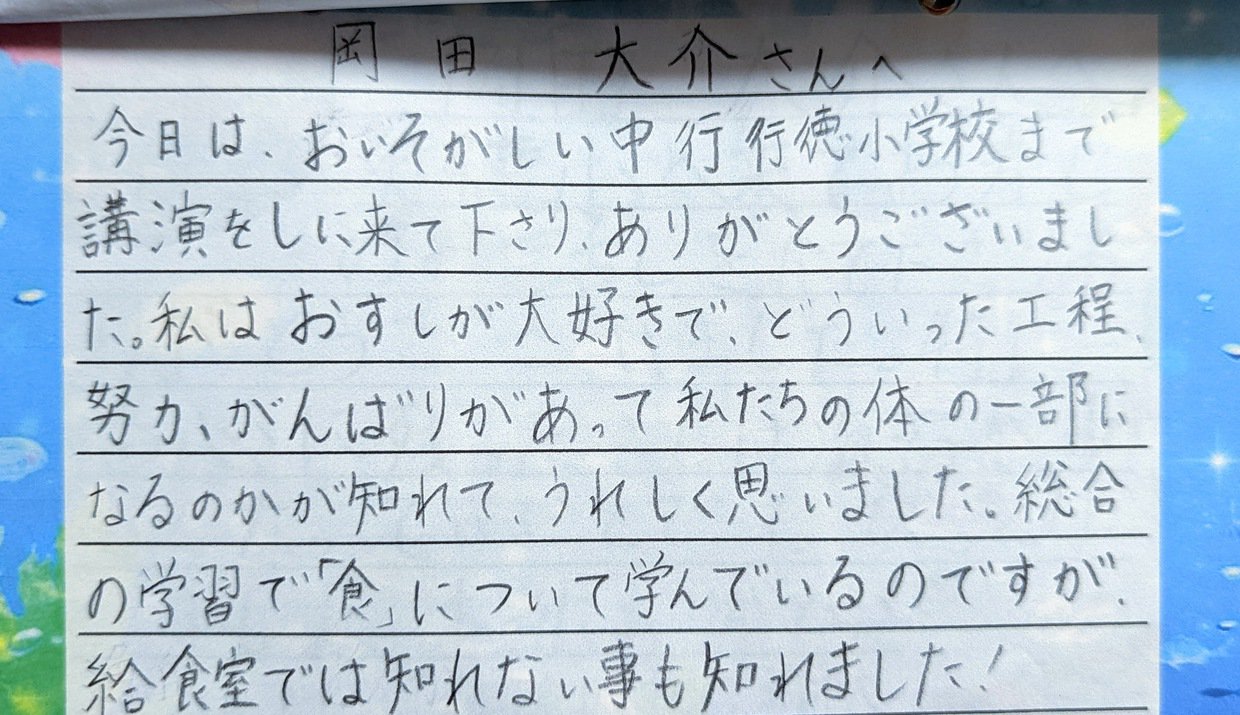 岡田 大介さんへ
今日は、おいそがしい中行行徳小学校まで
講演をしに来て下さり、ありがとうございまし
た。私はおすしが大好きで、どういった工程、
努力、がんばりがあって私たちの体の一部に
なるのかが知れて、うれしく思いました。総合
の学習で「食」について学んでいるのですが、
給食室では知れない事も知れました!